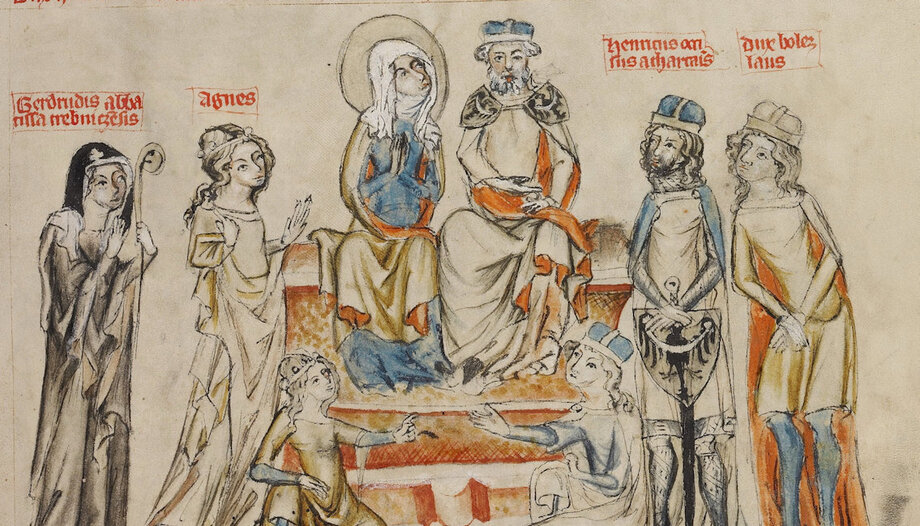 Gerdrudis abba
tissa trebniczesis
agnes
henricus occi
sus a thartaris
dux bolez
laus